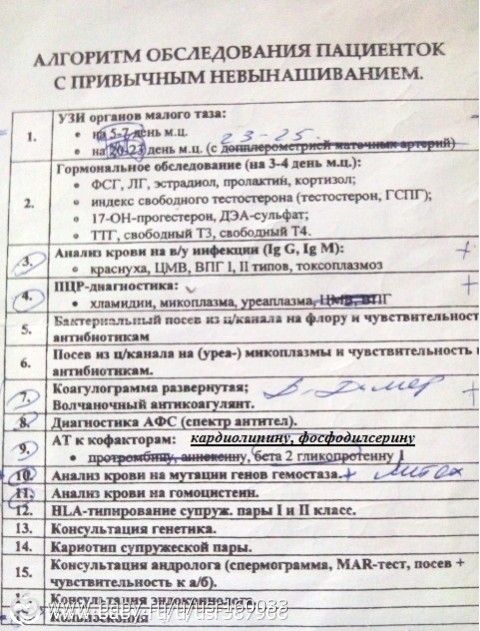 АЛГОРИТМ ОБСЛЕДОВАНИЯ ПАЦИЕНТОК
С ПРИВЫЧНЫМ НЕВЫНАШИВАНИЕМ.
1. УЗИ органов малого таза:
• на 5-7 день м.ц. 23-25.
• на 20-23 день м.ц. (с допплерометрией маточных артерий)
2. Гормональное обследование (на 3-4 день м.ц.):
• ФСГ, ЛГ, эстрадиол, пролактин, кортизол;
• индекс свободного тестостерона (тестостерон, ГСПГ);
• 17-ОН-прогестерон, ДЭА-сульфат;
• ТТГ, свободный Т3, свободный Т4.
3. Анализ крови на в/у инфекции (Ig G, Ig M): +
• краснуха, ЦМВ, ВПГ I, II типов, токсоплазмоз
4. ПЦР-диагностика: +
• хламидии, микоплазма, уреаплазма, ЦМВ, ВПГ
5. Бактериальный посев из ц/канала на флору и чувствительност
антибиотикам
6. Посев из ц/канала на (уреа-) микоплазмы и чувствительность
антибиотикам.
7. Коагулограмма развернутая; Д-димер +
Волчаночный антикоагулянт.
8. Диагностика АФС (спектр антител).
9. АТ к кофакторам: кардиолипину, фосфодилсерину
• протромбину, аннексину, бета 2 гликопротеину 1
10. Анализ крови на мутации генов гемостаза. +
11. Анализ крови на гомоцистеин.
12. HLA-типирование супруж. пары I и II класс.
13. Консультация генетика.
14. Кариотип супружеской пары.
15. Консультация андролога (спермограмма, MAR-тест, посев +
чувствительность к а/б).
Консультация эндокринолога.
www.baby.ru/u/usr389988
Кольпоскопия